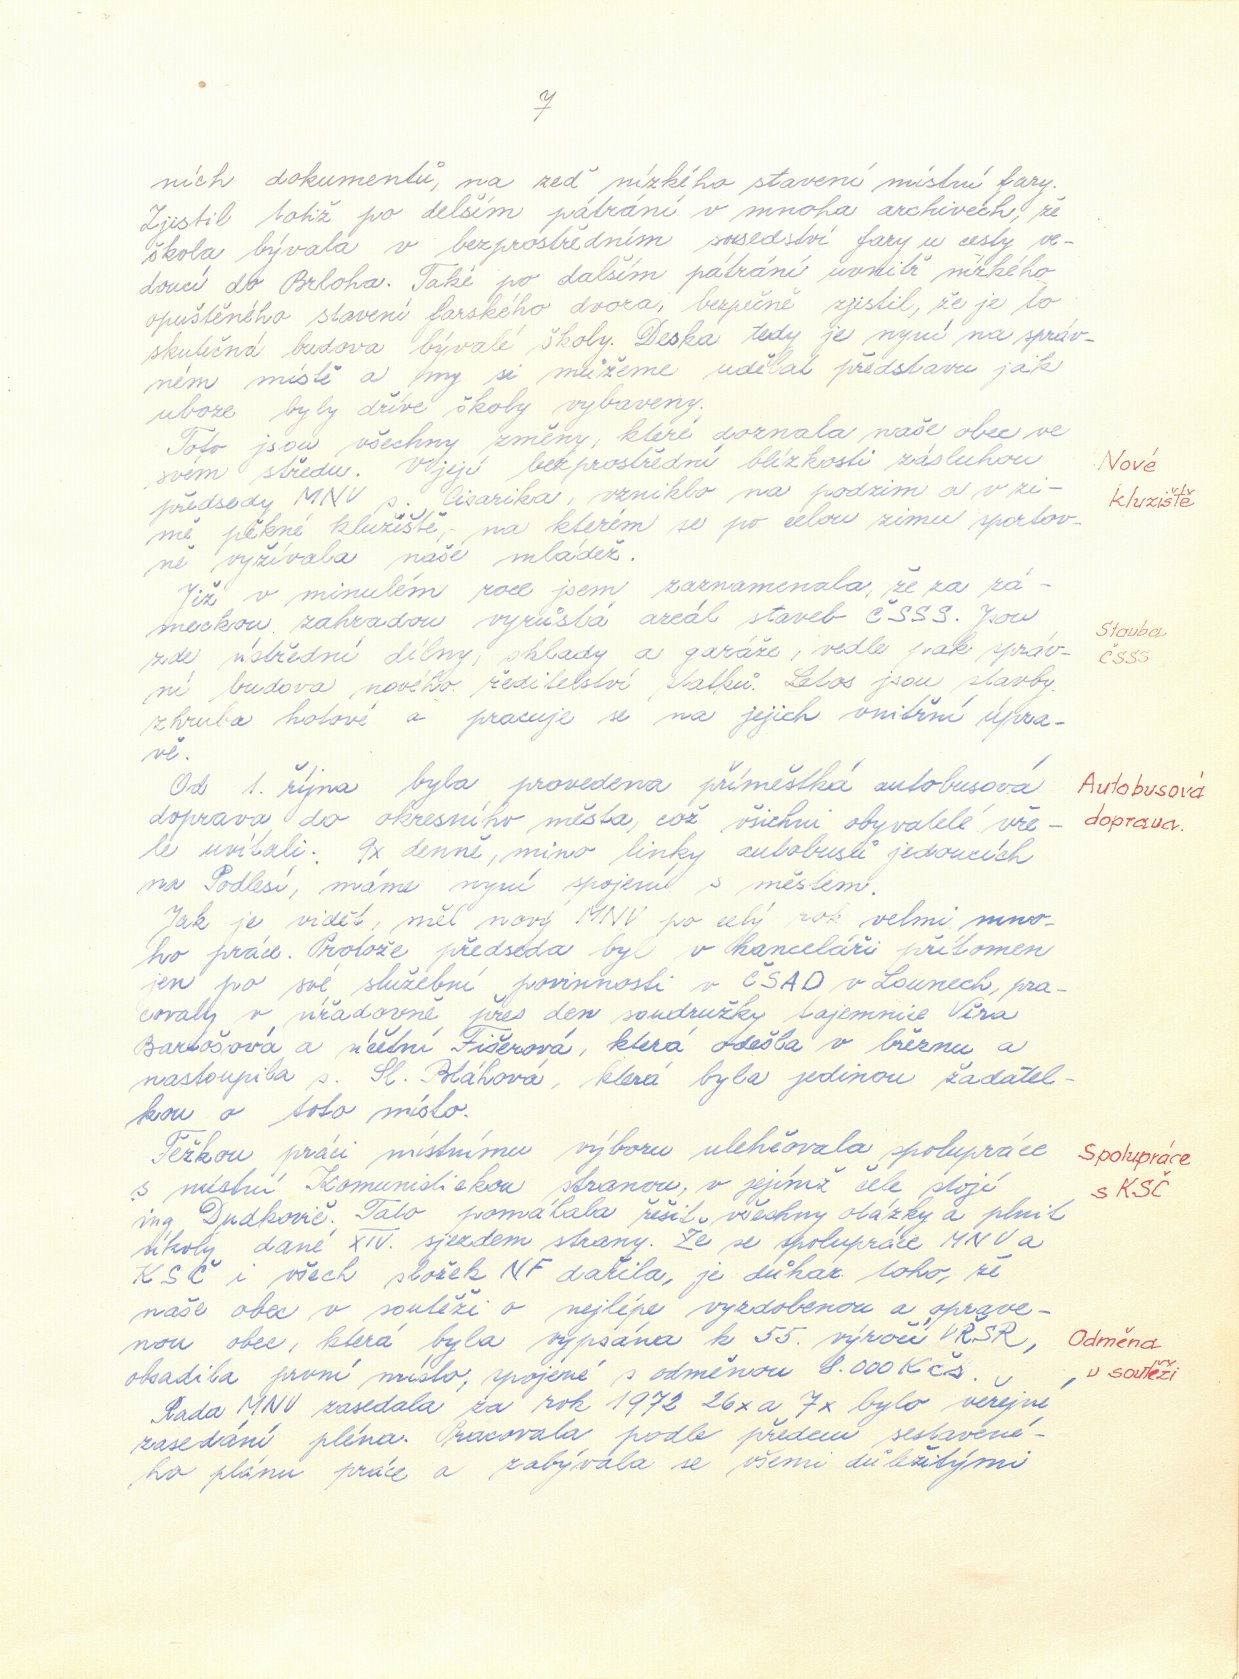 7
ních dokumentů, na zeď nízkého stavení místní fary.
Zjistil totiž po delším pátrání v mnoha archivech, že
škola bývala v bezprostředním sousedství fary u cesty ve-
doucí do Brloha. Také po dalším pátrání uvnitř nízkého
opuštěného stavení farského dvora, bezpečně zjistil, že je to
skutečná budova bývalé školy. Deska tedy je nyní na správ-
ném místě a my si můžeme udělat představu jak
uboze byly dříve školy vybaveny.
Toto jsou všechny změny, které doznala naše obec ve
svém středu. V její bezprostřední blízkosti zásluhou
předsedy MNV s. Cisarika, vzniklo na podzim a v zi-
mě pěkné kluziště, na kterém se po celou zimu sportov-
ně vyžívala naše mládež.
Nové
kluziště
Již v minulém roce jsem zaznamenala, že za zá-
meckou zahradou vyrůstá areál staveb ČSSS. Jsou
zde ústřední dílny, sklady a garáže, vedle pak správ-
ní budova nového ředitelství statků. Letos jsou stavby
zhruba hotové a pracuje se na jejich vnitřní úpra-
vě.
Stavba
ČSSS
Od 1. října byla provedena příměstká autobusová
doprava do okresního města, což všichni obyvatelé vře-
le uvítali. 9x denně, mimo linky autobusů jedoucích
na Podlesí, máme nyní spojení s městem.
Autobusová
doprava.
Jak je vidět, měl nový MNV po celý rok velmi mno-
ho práce. Protože předseda byl v kanceláři přítomen
jen po své služební povinnosti v ČSAD v Lounech, pra-
covaly v úřadovně přes den soudružky tajemnice Věra
Bartošová a účetní Fišerová, která odešla v březnu a
nastoupila s. Sl. Bláhová, která byla jedinou žadatel-
kou o toto místo.
Težkou práci místnímu výboru ulehčovala spolupráce
s místní Komunistickou stranou, v jejímž čele stojí
ing. Dudkovič. Tato pomáhala řešit všechny otázky a plnit
úkoly dané XIV. sjezdem strany. Že se spolupráce MNV a
KSČ i všech složek NF dařila, je důkaz toho, že
naše obec v soutěži o nejlépe vyzdobenou a oprave-
nou obec, která byla vypsána k 55. výročí VŘSR,
obsadila první místo, spojené s odměnou 8.000 Kčs.
Spolupráce
s KSČ
Odměna
v soutěži
Rada MNV zasedala za rok 1972 26x a 7x bylo veřejné
zasedání pléna. Pracovala podle předem sestavené-
ho plánu práce a zabývala se všemi důležitými